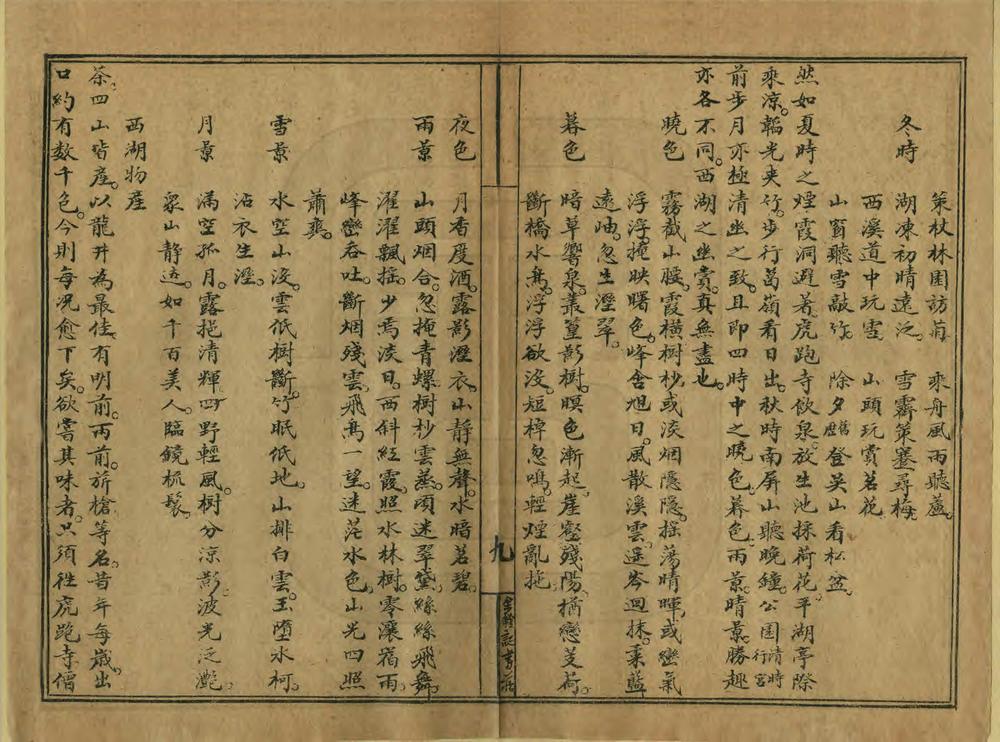 策杖林園訪菊　乘舟風雨聽蘆。
冬時　湖凍初晴遠泛。　雪霽策蹇尋梅。
西溪道中玩雪　山頭玩賞茗花
山窗聽雪敲竹　除夕舊曆登吳山看松盆。
然如夏時之煙霞洞避暑。虎跑寺飲泉。放生池採荷花。平湖亭際
乘涼。韜光夾竹。步行葛嶺看日出。秋時南屏山聽晚鐘。公園清時行宮
前步月亦極清幽之致。且即四時中之曉色。暮色。雨景。晴景。勝趣
亦各不同。西湖之幽賞。真無盡也。
曉色　霧截山腰。霞橫樹杪。或淡烟隱隱。搖蕩晴暉。或巒氣
浮浮。掩映曙色。峰含旭日。風散溪雲。遥岑迴抹。柔藍
遠岫。忽生溼翠。
暮色　暗草響泉。叢篁影樹。暝色漸起。崖壑殘陽。猶戀芰荷。
斷橋水高。浮浮欲沒。短棹忽鳴。輕煙亂拖。
九
夜色　月香度酒。露影溼衣。山靜無聲。水暗若碧。
雨景　山頭烟合。忽掩青螺。樹杪雲蒸。頃迷翠黛。絲絲飛舞。
濯濯飄搖。少焉淡日。西斜紅霞。照水林樹。零瀼宿雨。
峰巒吞吐。斷烟殘雲。飛高一望。迷茫水色。山光四照
蕭爽。
雪景　水空山沒。雲低樹斷。竹眠低地。山排白雲。玉墮水柯。
沾衣生溼。
月景　滿空孤月。露挹清輝。四野輕風。樹分涼影。波光泛灔。
衆山靜遠。如千百美人。臨鏡梳鬟。
西湖物產
茶。四山皆產。以龍井為最佳。有明前。雨前。旂槍等名。昔年每歲。出
口約有数千色。今則每況愈下矣。欲嘗其味者。只須徃虎跑寺僧